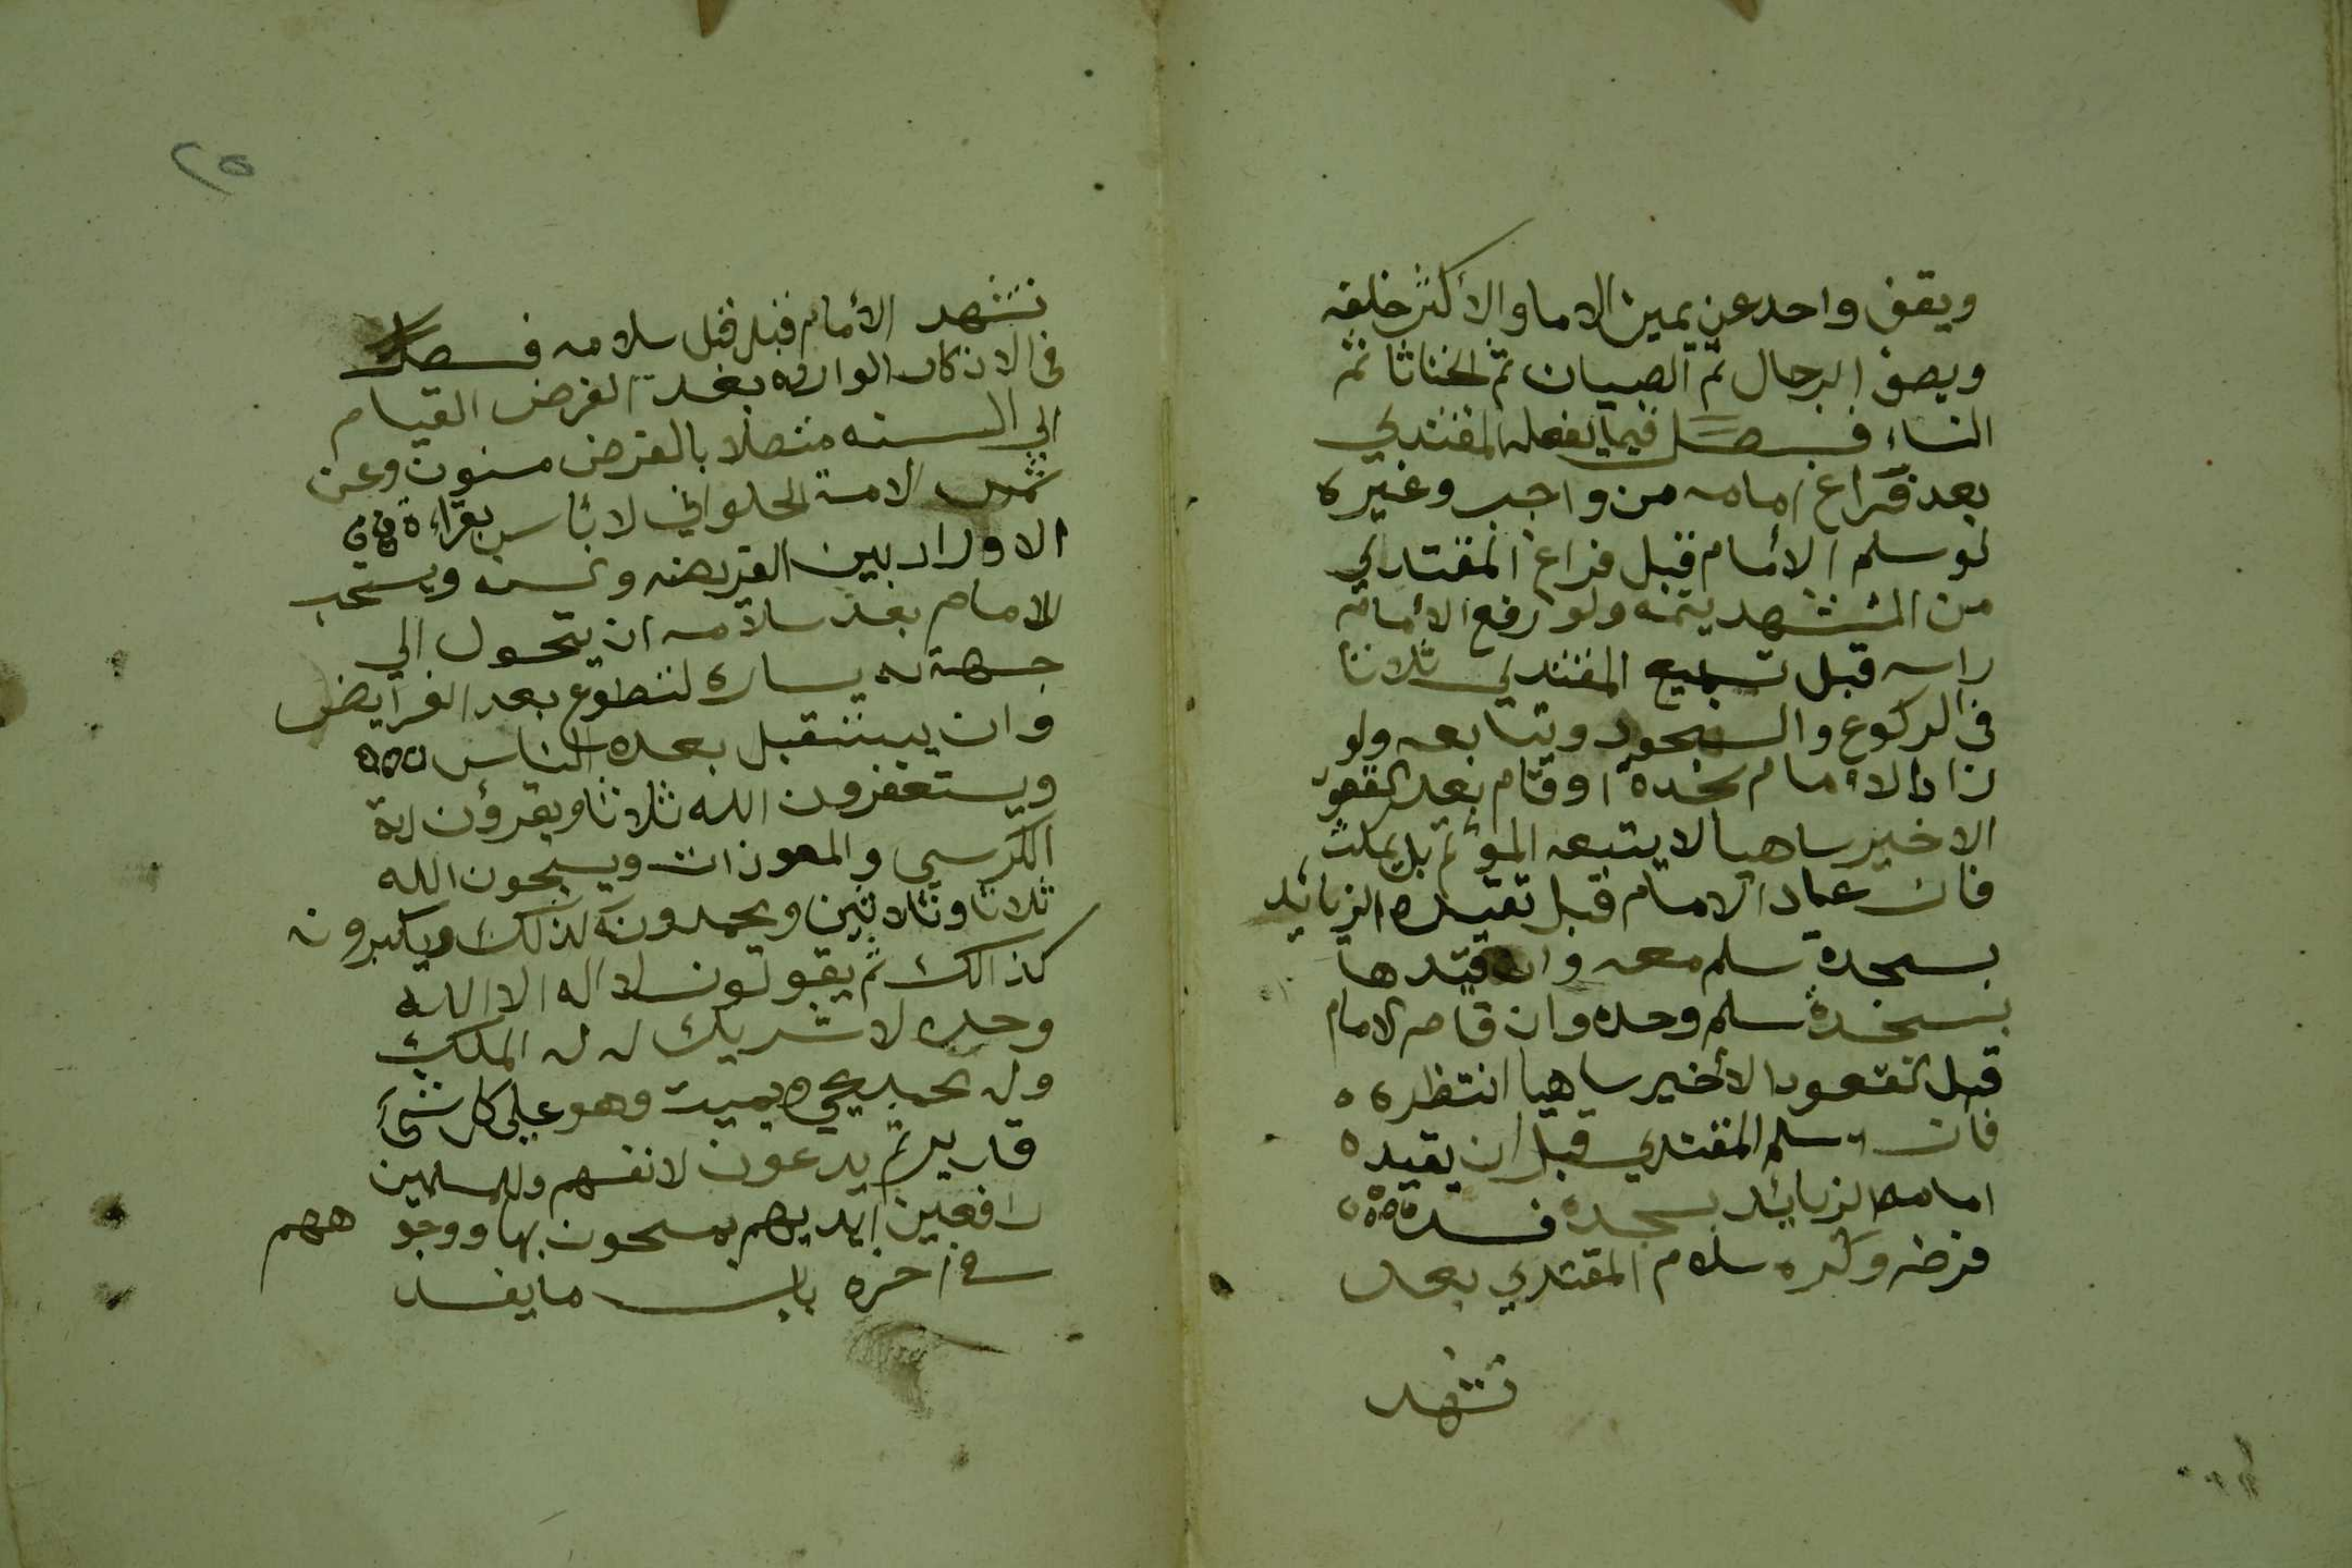 ويقف واحد عن يمين الاما والأكثر خلفه
ويصف الرجال ثم الصبيان ثم الخناثا ثم
النساء فصل فيما يفعله المقتدي
بعد فراغ امامه من واجب وغيره
لو سلم الامام قبل فراغ المقتدي
من التشهد يتمه ولو رفع الامام
راسه قبل تسبيح المقتدي ثلاثا
في الركوع والسجود ويتابعه ولو
زاد الامام سجدة او قام بعد القعو
الاخير ساهيا لا يتبعه المؤتم بل يمكث
فان عاد الامام قبل تقيده الزيائد
بسجدة سلم معه وان قيدها
بسجدة سلم وحده وان قام الامام
قبل القعود الأخير ساهيا انتظره
فان سلم المقتدي قبل ان يقيد
امامه الزيائد بسجدة فسد
فرضه وكره سلام المقتدي بعد
تشهد
٢٥
تشهد الأمام قبل سلامه فصل
في الاذكار الوارده بعد الفرض القيام
الي السنه متصلا بالفرض مسنون وعن
شمس الامة الحلواني لا بأس بقراءة
الاوراد بين الفريضه والسنه ويستحب
للامام بعد سلامه ان يتحول الي
جهة يساره لتطوع بعد الفرايض
وان يستقبل بعده الناس
ويستغفرون الله ثلاثا ويقرؤن اية
الكرسي والمعوذات ويسبحون الله
ثلاثا وثلاثين ويحمدونه كذلك ويكبرونه
كذالك ثم يقولون لا اله الا الله
وحده لا شريك له له الملك
وله لحمد يحي ويميت وهو علي كل شئ
قدير ثم يدعون لانفسهم وللمسلمين
رافعين ايديهم يمسحون بها ووجو ههم
في اخره باب ما يفسد